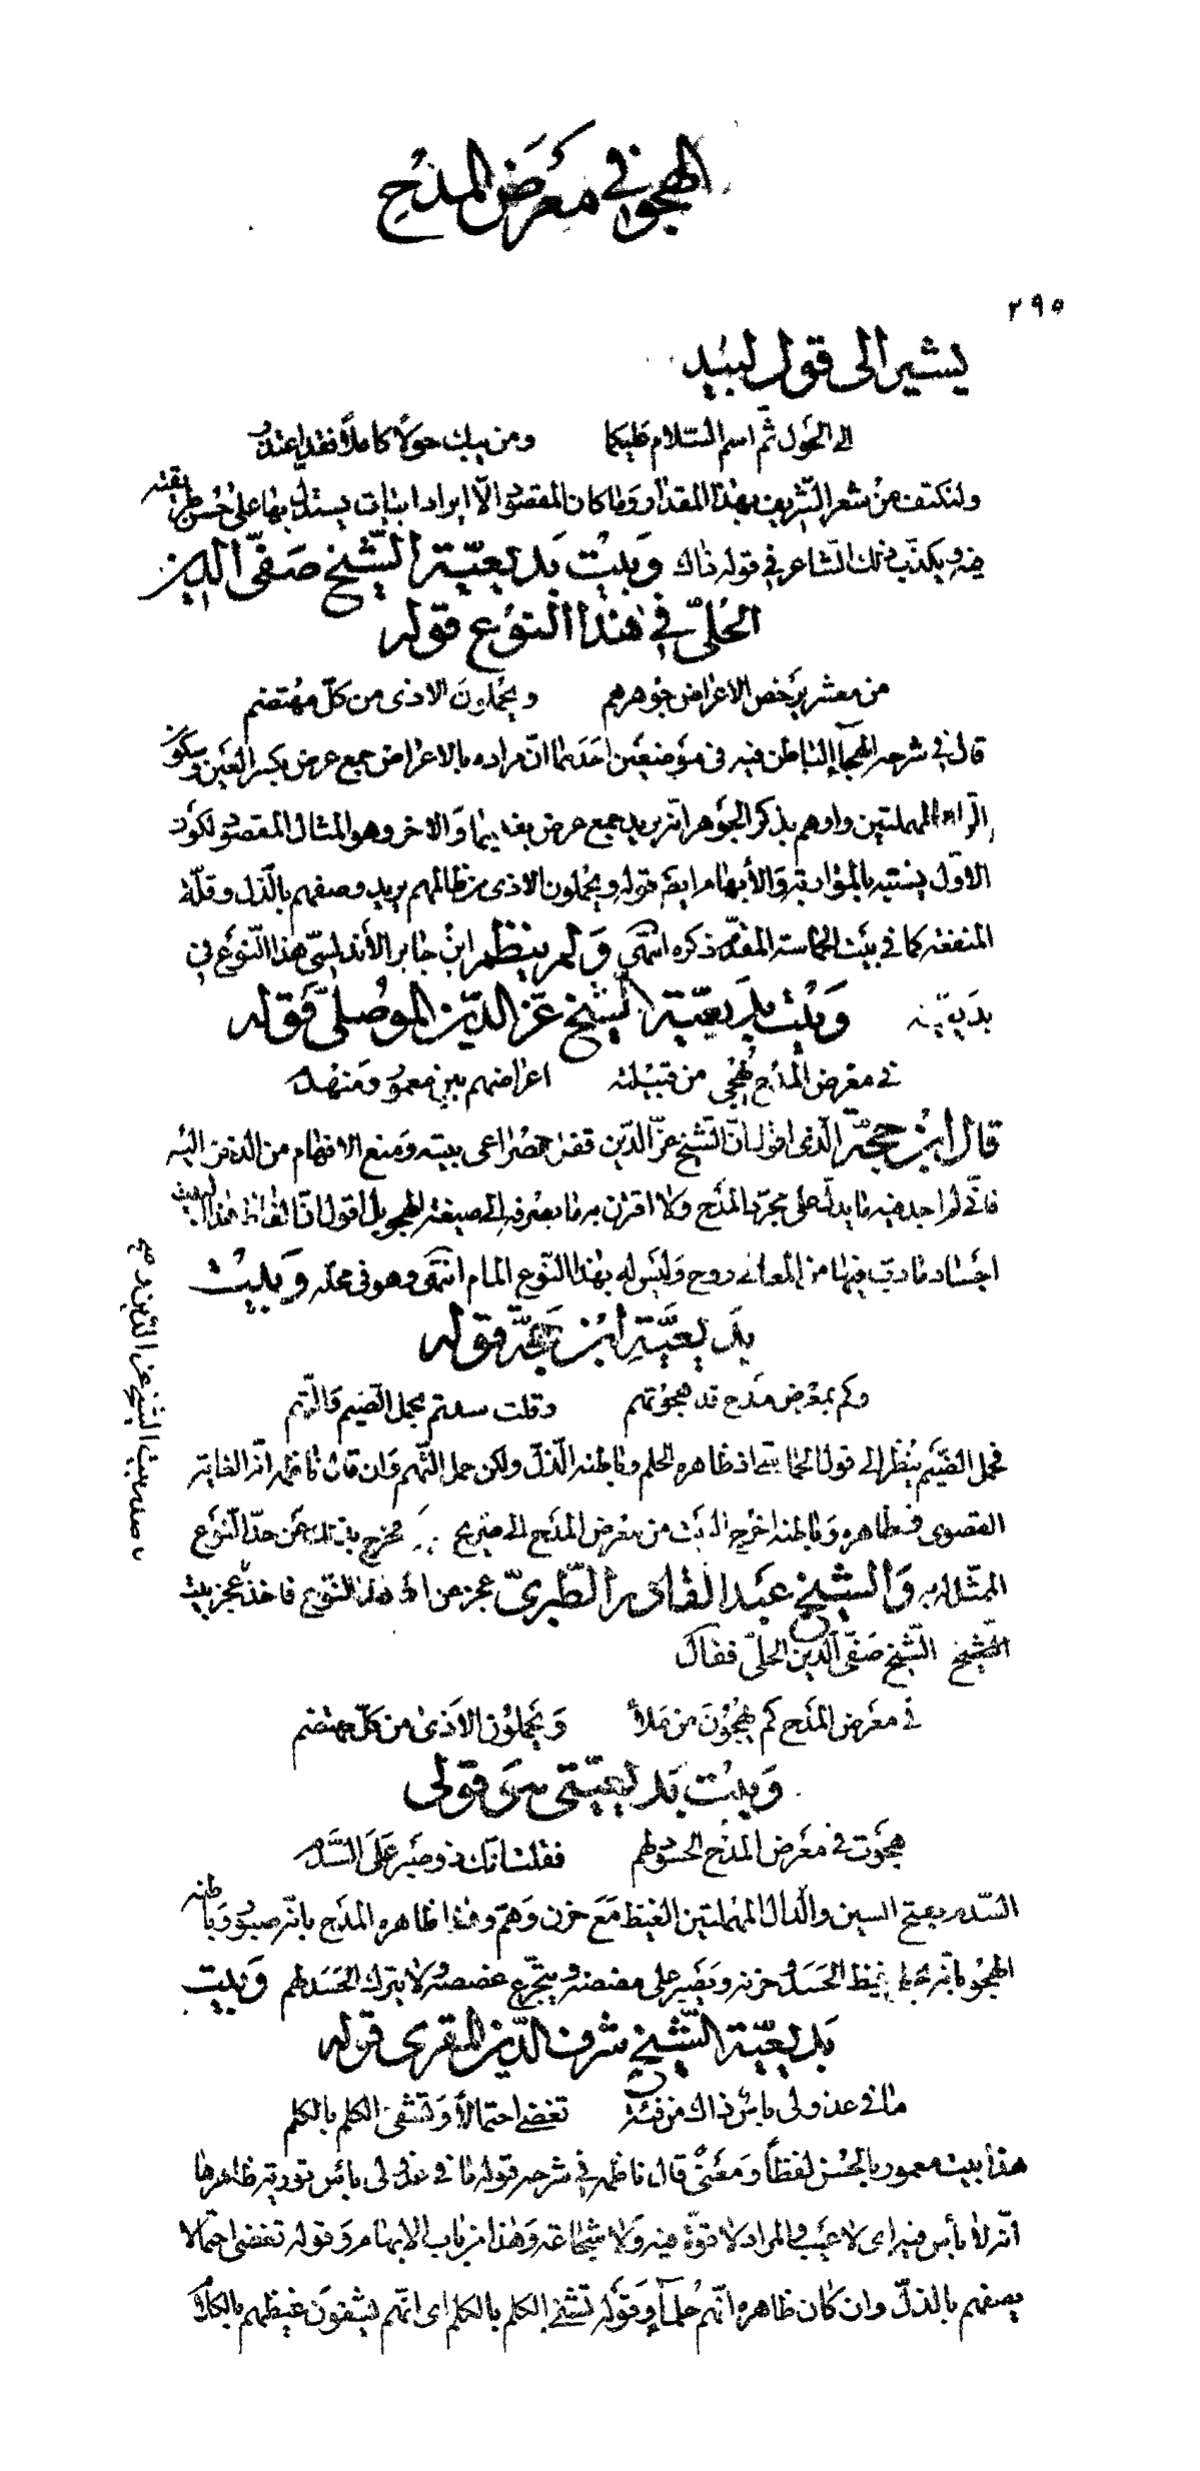 الهجو في معرض المدح
٢٩٥
يشير الى قول لبيد
الى الحول ثم اسم السلام عليكما ومن يبك حولا كاملا فقد اعتذر
ولنكتف من شعر الشريف بهذا المقدار وما كان المقصود الا ايراد ابيات يستدل بها على حسن طريقته
فيه ويكذب ذلك الشاعر في قوله ذاك وبيت بديعية الشيخ صفي الدين
الحلي في هذا النوع قوله
من معشر يرخص الاعراض جوهرهم ويحملون الاذى من كل مهتضم
قال في شرحه الهجاء الباطن فيه في موضعين احدهما ان مراده بالاعراض جمع عرض بكسر العين وسكون
الراء المهملتين واوهم بذكر الجوهر انه يريد جمع عرض بفتحهما والاخر وهو المثال المقصود لكون
الاول يشتبه بالمواربة والأبهام ايضا قوله ويحملون الاذى من ظالمهم يريد وصفهم بالذل وقلة
المنفعة كما في بيت الحماسة المقدم ذكره انتهى ولم ينظم ابن جابر الأندلسي هذا النوع في
بديعيته وبيت بديعية الشيخ عز الدين الموصلي قوله
في معرض المدح تهجى من قبيلته اعراضهم بين معمور ومنهدم
قال ابن حجة الذي اقول ان الشيخ عز الدين قفل حصرا على بيته ومنع الافهام من الدخول اليه
فاني لم اجد فيه ما يدل على مجرد المدح ولا اقترن به ما يصرفه الى صيغة الهجو بل اقول ان الفاظ هذا البيت
اجساد ما دب فيها من المعاني روح وليس له بهذا النوع المام انتهى وهو في محله وبيت
بديعية ابن حجة قوله
وكم بمعرض مدح قد هجوتهم وقلت سدتم بحمل الضيم والتهم
فحمل الضيم ينظر الى قول الحماسي اذ ظاهره الحلم وباطنه الذل ولكن حمل التهم وان قال ناظمه انه الغاية
القصوى في ظاهره وباطنه اخرج البيت من معرض المدح الى صريح فخرج بذلك عن حد النوع
الممثل له به والشيخ عبد القادر الطبري عجز عن هذا النوع فاخذ عجز بيت
الشيخ الشيخ صفي الدين الحلي فقال
في معرض المدح كم يهجون من ملأ ويحملون الاذى من كل مهتضم
وبيت بديعيتي هو قولي
هجوت في معرض المدح الحسود لهم فقلت انك ذو صبر على السدم
السدم بفتح السين والدال المهملتين الغيظ مع حزن وهم وهذا ظاهره المدح بانه صبور وباطنه
الهجو بانه غيظ الحسد وحزنه ويصبر على مضضه ويتجرع غصصه ولا يترك الحسد لهم وبيت
بديعية الشيخ شرف الدين المقري قوله
ما في عذولى بأس ذاك من فئة تغضى احتمالا وتشفى الكلم بالكلم
هذا بيت معمور بالحسن لفظا ومعنى قال ناظمه في شرحه قوله ما في عذولى بأس تورية ظاهرها
انه لا بأس فيه اى لا عيب والمراد لا قوة فيه ولا شجاعة وهذا من باب الابهام وقوله تغضى احتمالا
يصفهم بالذل وان كان ظاهره انهم حلماء وقوله تشفى الكلم بالكلم اى انهم يشفون غيظهم بالكلام
صفه بيت الشيخ عز الدين